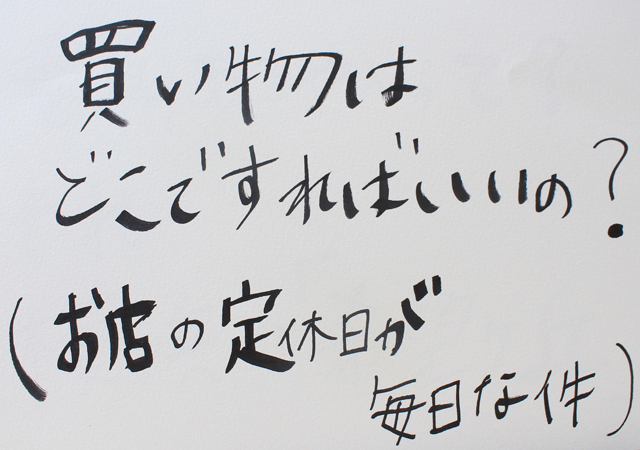 買い物は
どこですればいいの?
(お店の定休日が
毎日な件)